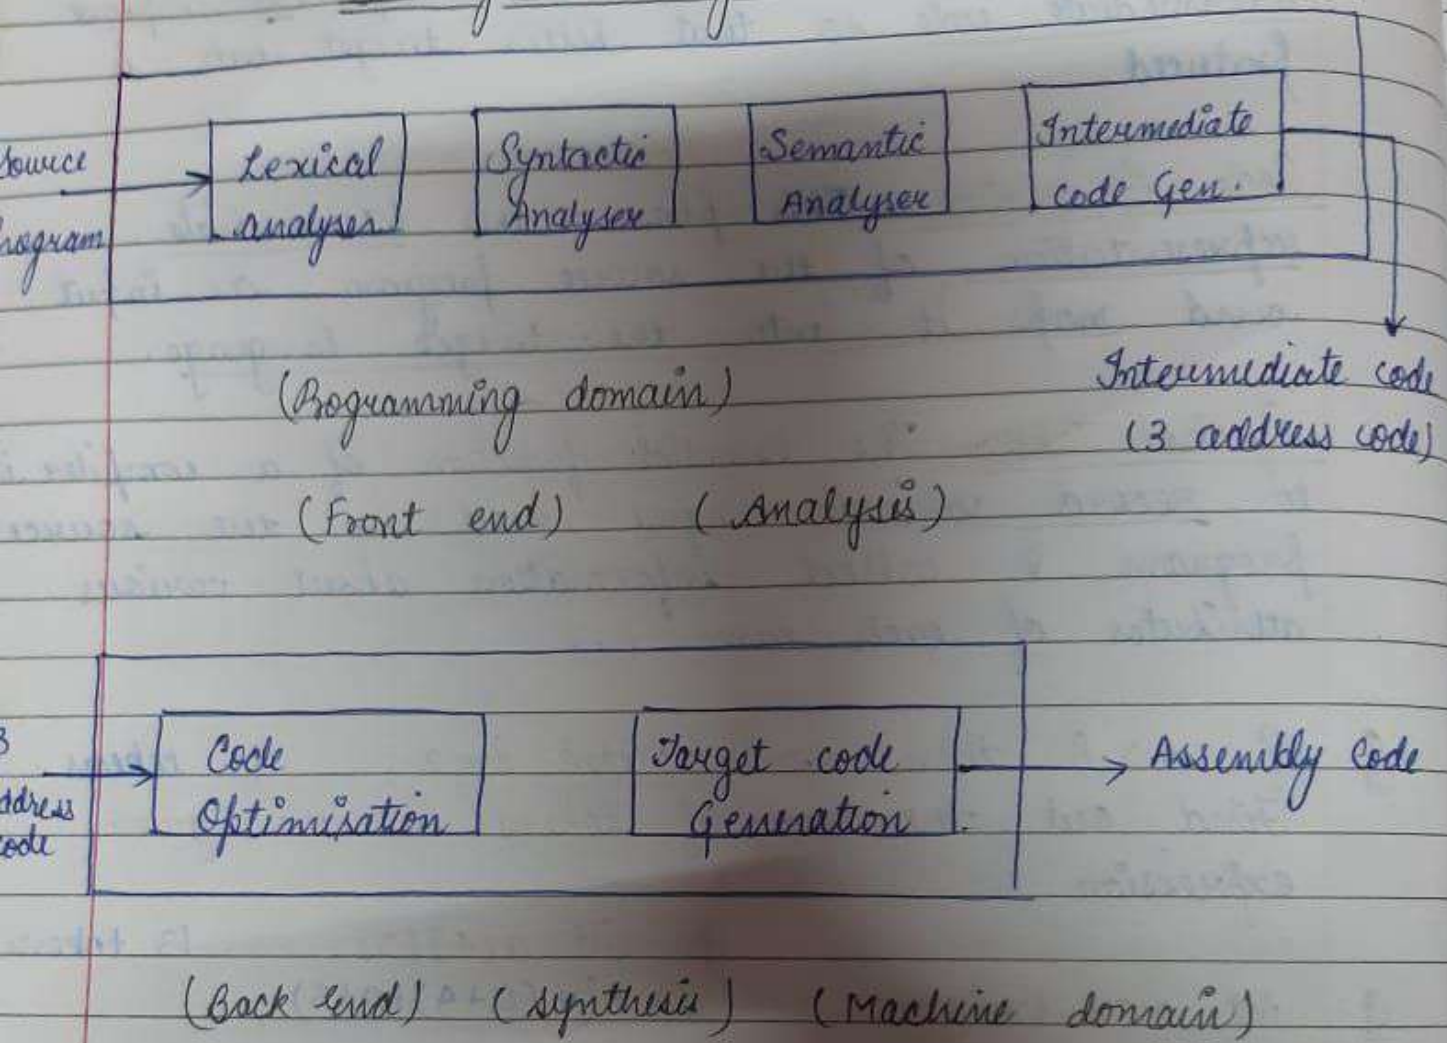 Source
Program
Lexical
analyser
Syntactic
Analyser
Semantic
Analyser
Intermediate
code Gen.
Intermediate code
(3 address code)
(Programming domain)
(Front end) (Analysis)
3
address
code
Code
Optimisation
Target code
Generation
Assembly Code
(Back end) (Synthesis) (Machine domain)